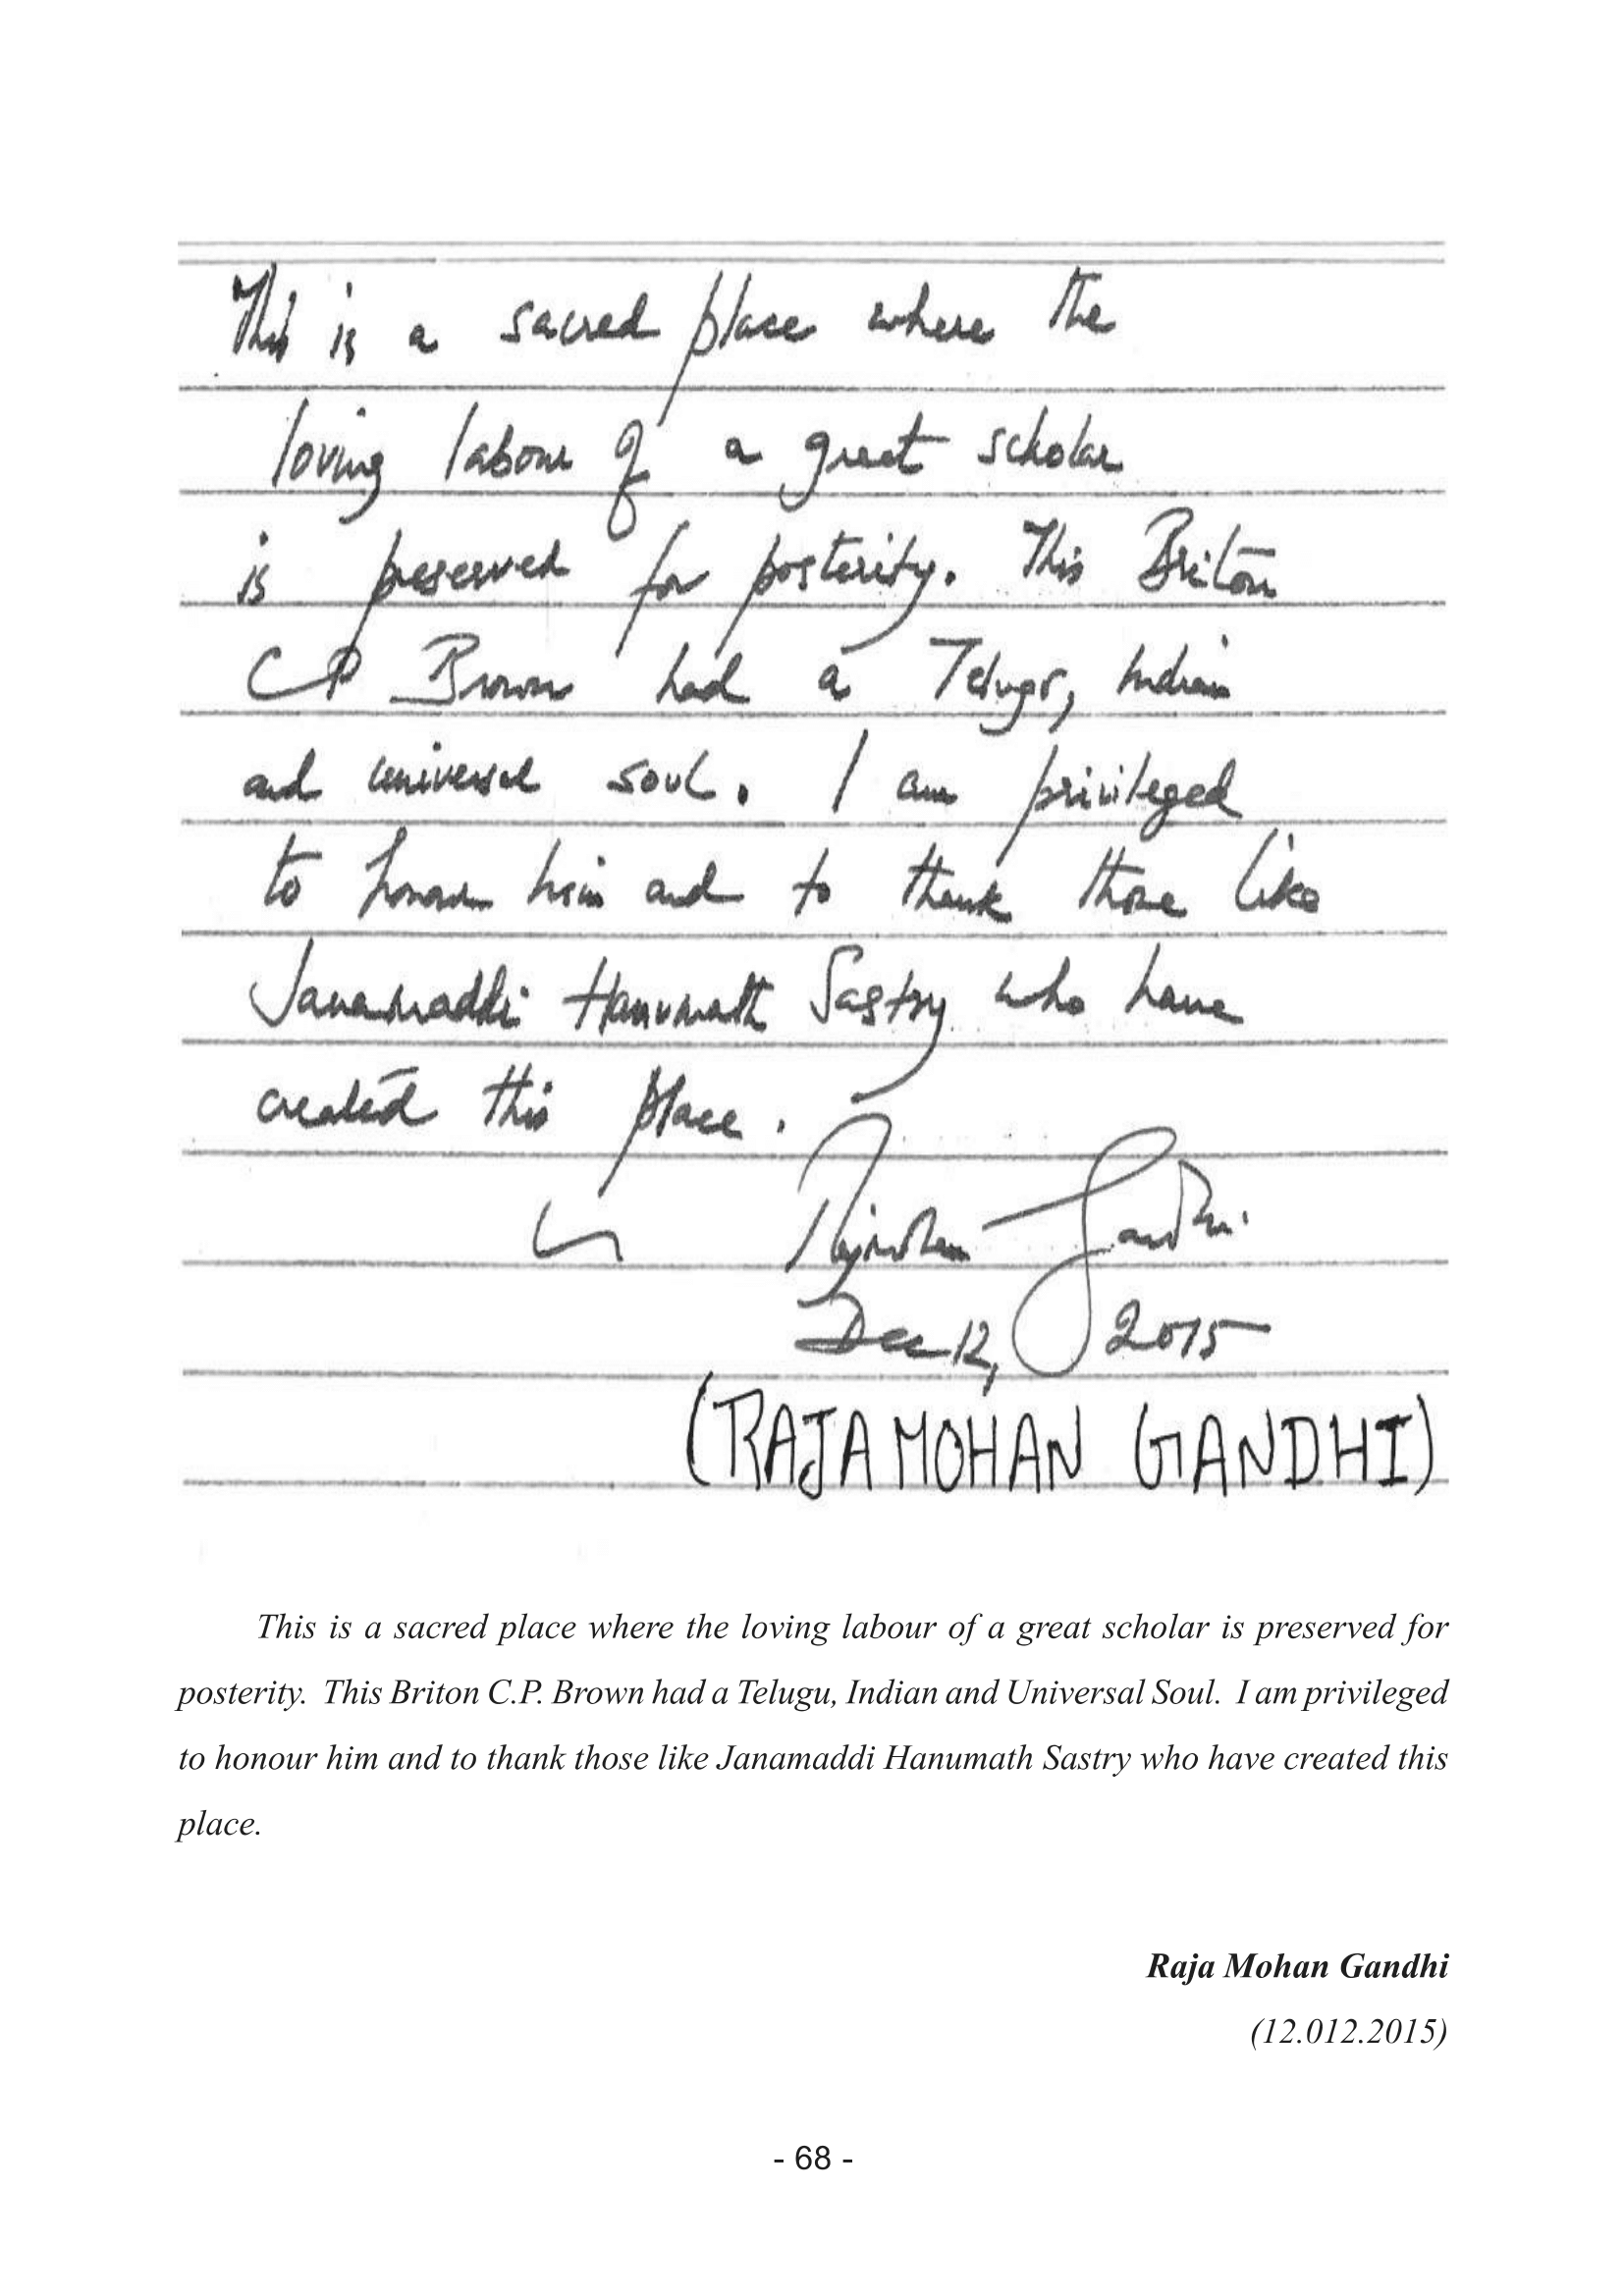 This is a sacred place where the
loving labour of a great scholar
is preserved for posterity. This Briton
CP Brown had a Telugu, Indian
and universal soul. I am privileged
to honour him and to thank those like
Janamaddi Hanumath Sastry who have
created this place.
Rajmohan Gandhi
Dec 12, 2015
(RAJA MOHAN GANDHI)
This is a sacred place where the loving labour of a great scholar is preserved for
posterity. This Briton C.P. Brown had a Telugu, Indian and Universal Soul. I am privileged
to honour him and to thank those like Janamaddi Hanumath Sastry who have created this
place.
Raja Mohan Gandhi
(12.012.2015)
- 68 -